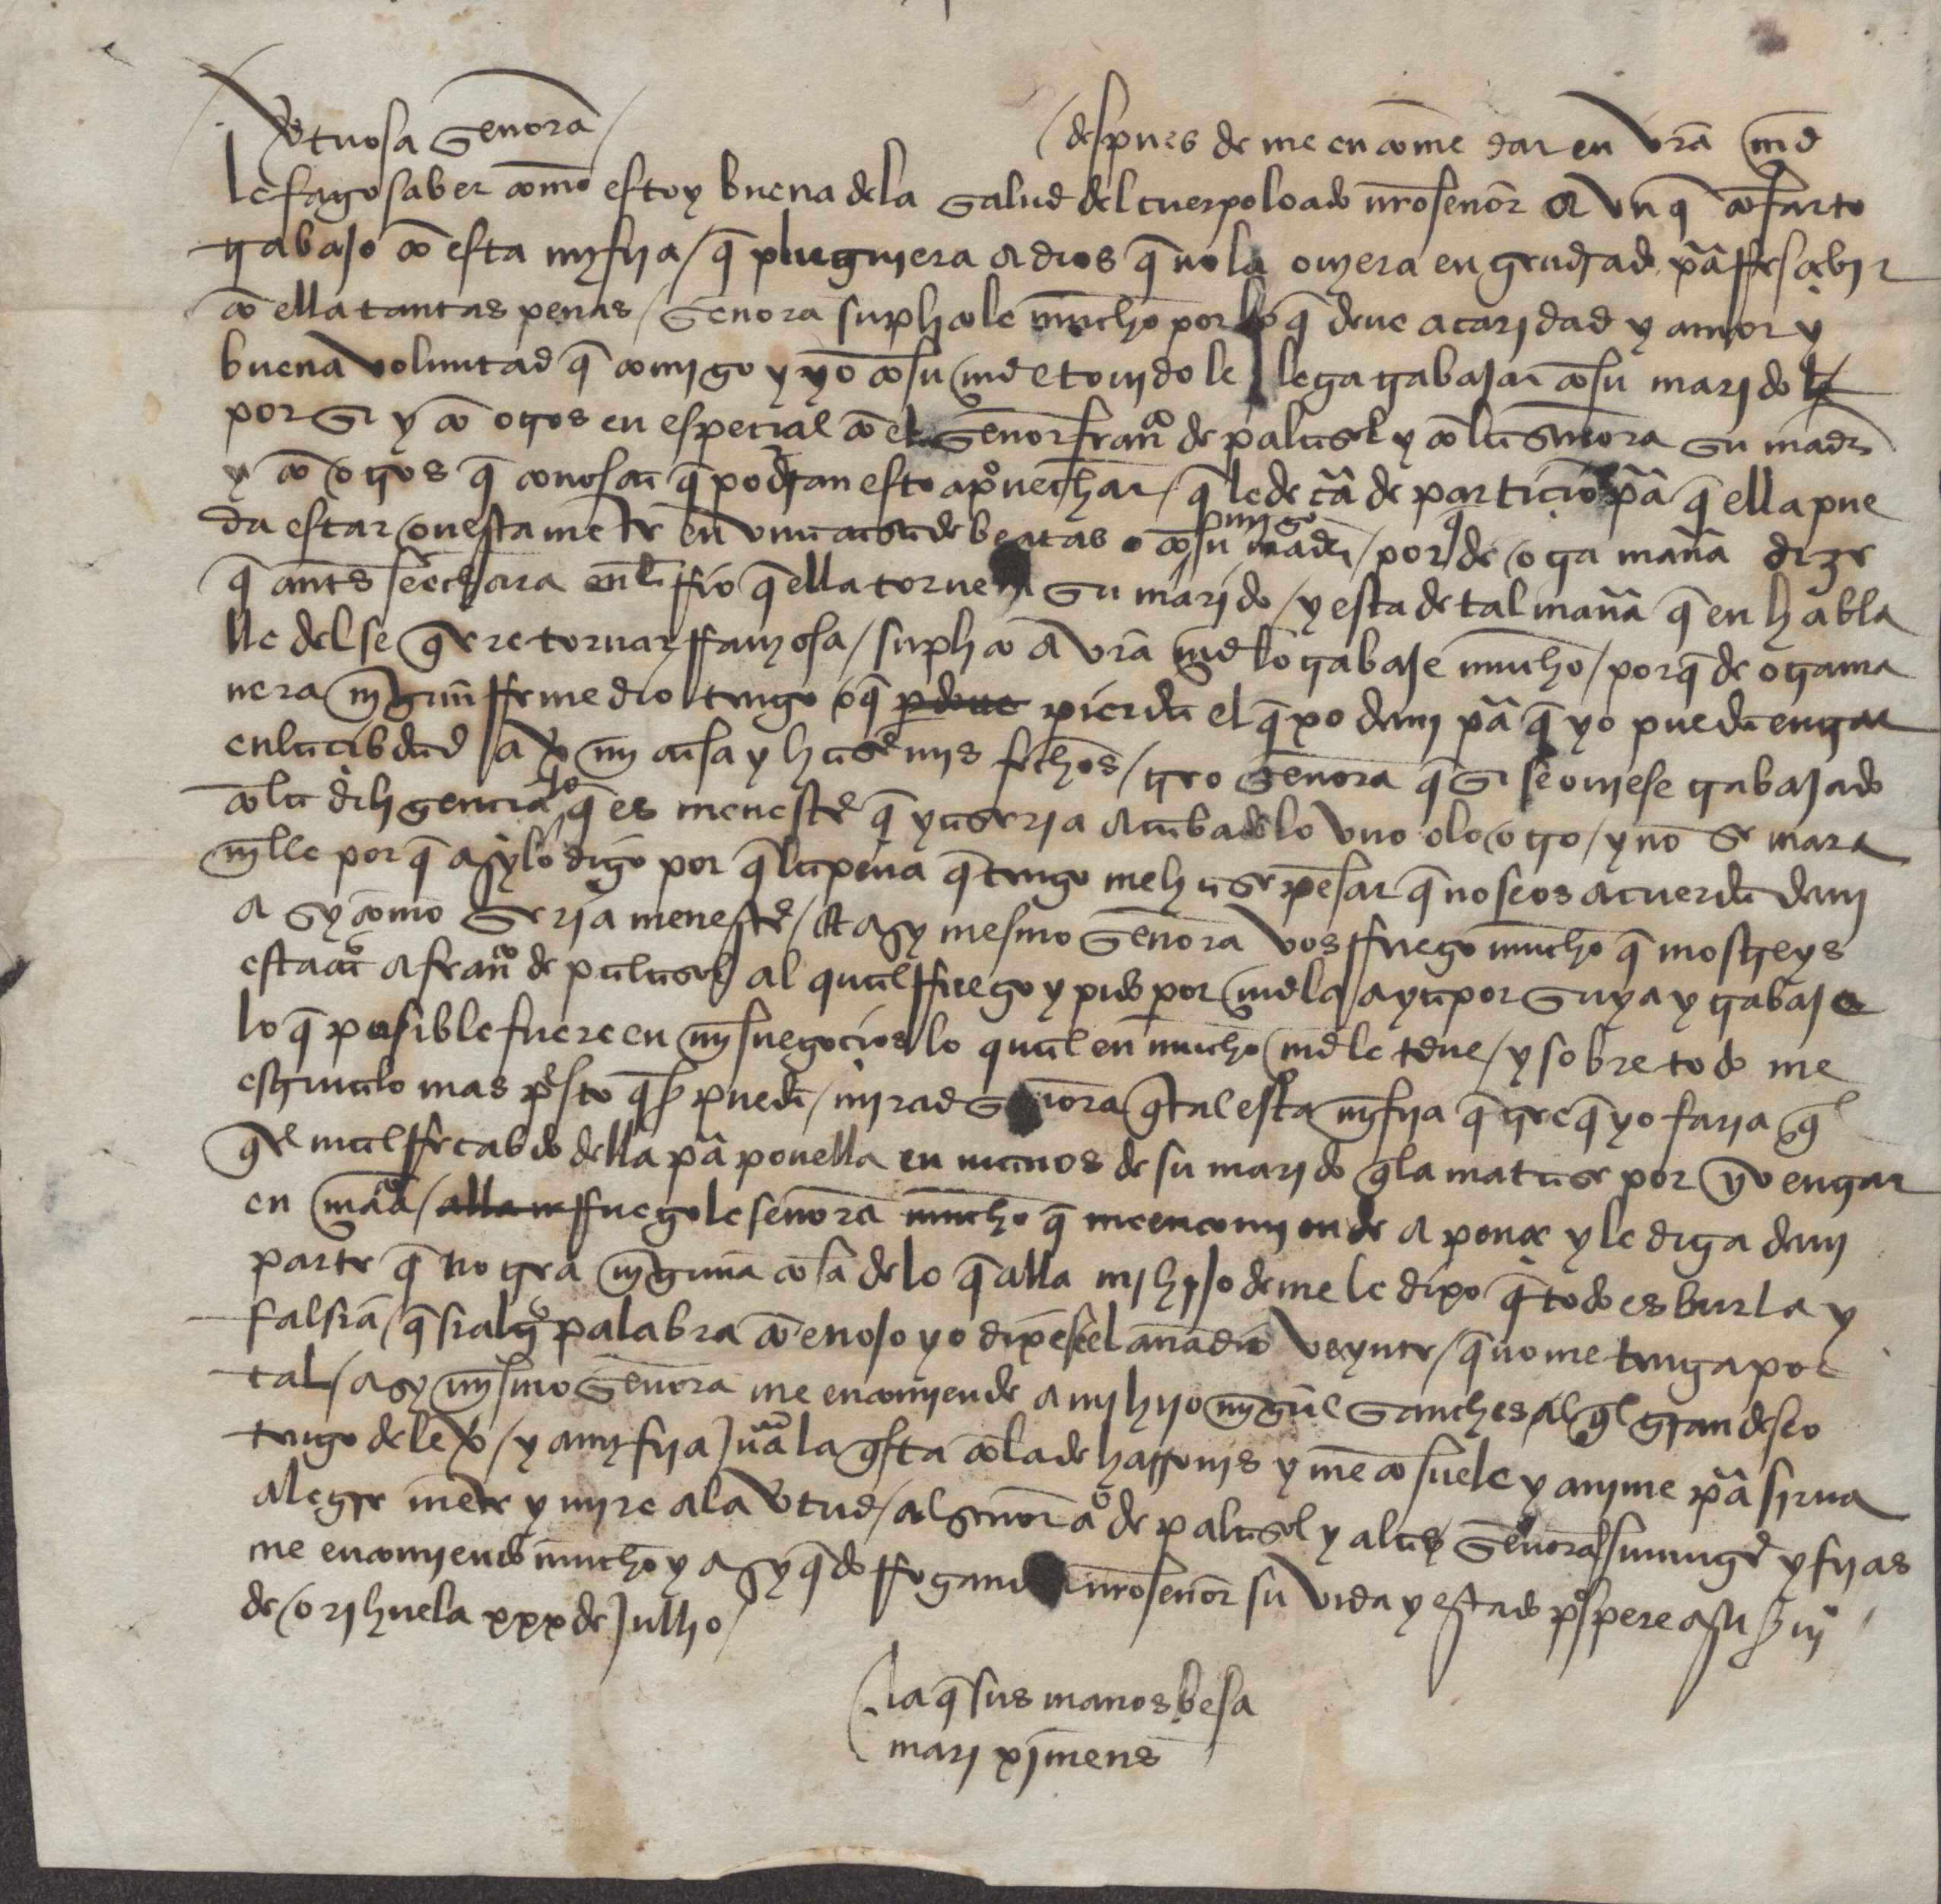 Vtuosa señora / despues de me encomendar en vra md
le fago saber como estoy buena de la salud del cuerpo loado nro senor avnq con farto
trabajo con esta my fija / q pluguyera a dios q no la ouyera engendrado pa rresçebyr
con ella tantas penas / señora suplicole mucho por lo q deue a caridad y amor y
buena voluntad q comigo y yo con su md e tovido le plega trabajar con su marido
por si y con otros en especial con el señor franco de palasol y con la señora su madre
y con otros q conoscan q podran esto aprouechar / q le de carta de particion pa q ella pue
da estar onestamente en vna casa de beatas o comigo su madre / porq de otra manera dize
q antes se echara en el rrio q ella torne a su marido / y esta de tal manera q en habla
lle del se qere tornar rrauyosa / suplico a vra md lo trabaje mucho / porq de otra ma
nera nyngun rremedio tengo o q pierda el q poder pa q yo pueda entrar
en la cibdad a ver my casa y haser mys fechos / creo señora q si se ouyese trabajado
con la diligencia q es menester q ya seria acabado lo vno o lo otro / y no se mara
ville por q asy lo digo por q la pena q tengo me hase pensar q no seos acuerda de my
asy como seria menester / asy mesmo señora vos rruego mucho q mostreys
esta carta a franco de palasol al qual rruego y pido por md la aya por suya y trabaje
lo q posible fuere en mys negocios lo qual en mucho md le terne / y sobre todo me
escriua lo mas presto q pueda / mirad señora qtal esta my fija q cree q yo faria ql
qer mal rrecabdo della pa ponella en manos de su marido q la matase por yo entrar
en / rruegole señora mucho q me encomyende a y le diga de my
parte q no crea nynguna cosa de lo q alla my hijo de me le dixo q todo es burla y
falsia / q si alguna palabra con enojo yo dixese el añadio veynte / q no me tenga por
tal / asy mysmo señora me encomyende a my hijo myguel sanches al ql gran deseo
tengo de lo ver / y a my fija juana la qsta con la de y me consuele y anyme pa sirua
alegremente y mire a la vertud / al señor fo de palasol y a las señoras su muger y fijas
me encomyendo mucho y asy qdo rrogando a nro señor su vida y estado prospere a su
de orihuela xxx de jullio
la q sus manos besa
mari ximenes